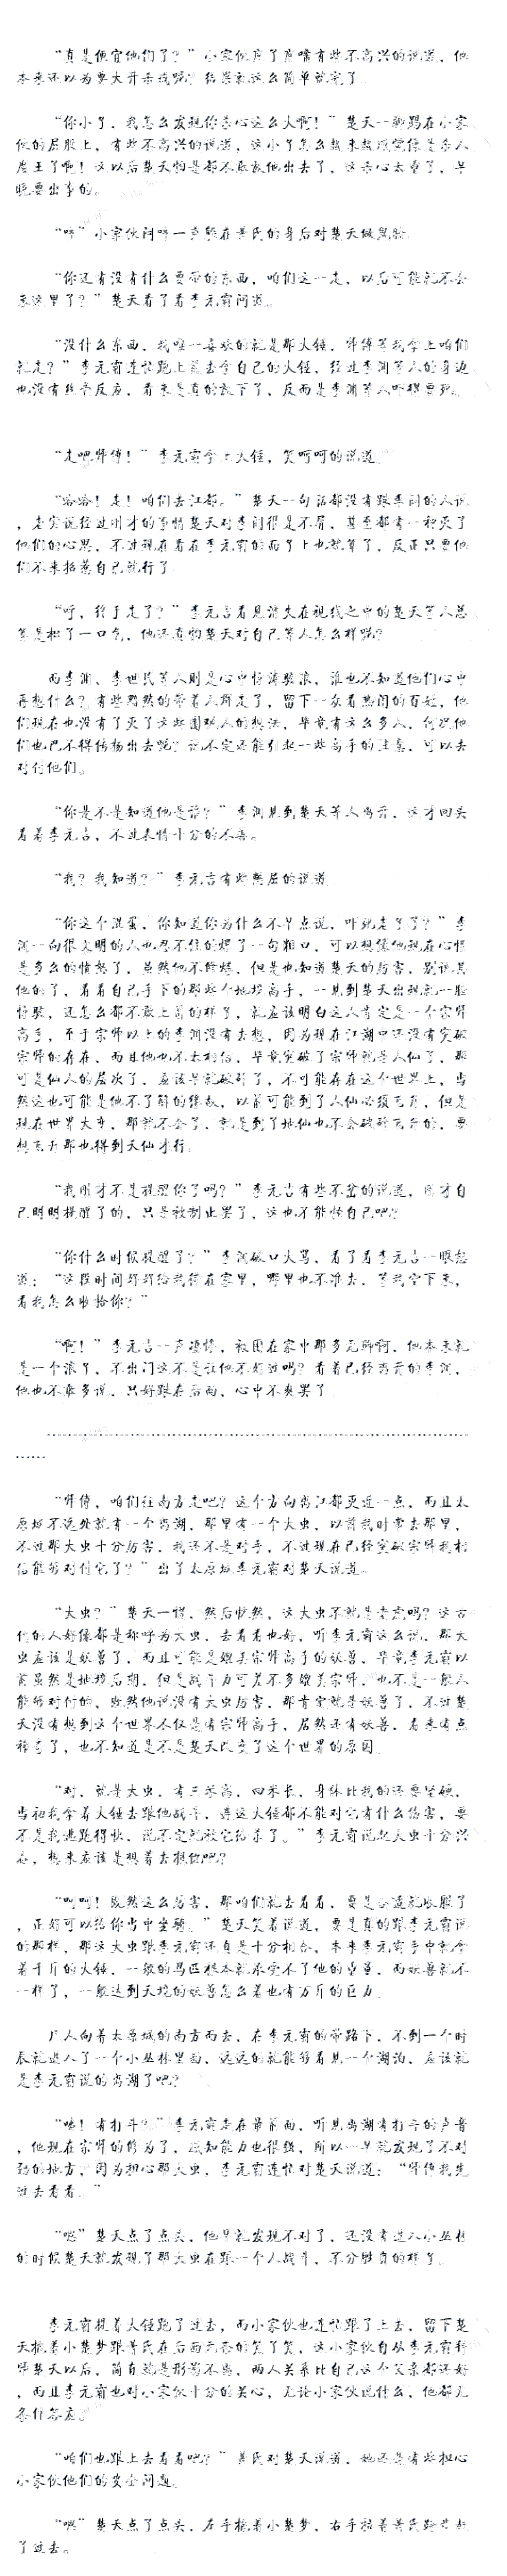 “真是便宜他们了？”小家伙度了度嘴有些不高兴的说道，他
本来还以为要大开杀戒呢？结果就这么简单就完了
“你小子，我怎么发现你杀心这么大啊！”楚天一脚踢在小家
伙的屁股上，有些不高兴的说道，这小子怎么越来越感觉像是杀人
魔王了啊！这以后楚天怕是都不敢放他出去了，这杀心太重了，早
晚要出事的。
“哼”小家伙闷哼一声躲在萧氏的身后对楚天做鬼脸
“你还有没有什么要带的东西，咱们这一走，以后可能就不会
来这里了？”楚天看了看李元霸问道。
“没什么东西，我唯一喜欢的就是那大锤，师傅等我拿上咱们
就走？”李元霸连忙跑上前去拿自己的大锤，经过李渊等人的身边
也没有丝毫反应，看来是真的放下了，反而是李渊等人吓得要死。
“走吧师傅！”李元霸拿上大锤，笑呵呵的说道。
“哈哈！走！咱们去江都。”楚天一句话都没有跟李渊的人说
，老实说经过刚才的事情楚天对李阀很是不屑，甚至都有一种灭了
他们的心思，不过现在看在李元霸的面子上也就算了，反正只要他
们不来招惹自己就行了
“呼，终于走了？”李元吉看见消失在视线之中的楚天等人总
算是松了一口气，他还真怕楚天对自己等人怎么样呢？
而李渊、李世民等人则是心中惊涛骇浪，谁也不知道他们心中
再想什么？有些黯然的带着人群走了，留下一众看热闹的百姓，他
们现在也没有了灭了这些围观人的想法，毕竟有这么多人，何况他
们也巴不得传扬出去呢？说不定还能引起一些高手的注意，可以去
对付他们。
“你是不是知道他是谁？”李渊见到楚天等人离开，这才回头
看着李元吉，不过表情十分的不善。
“我？我知道？”李元吉有些憋屈的说道
“你这个混蛋，你知道你为什么不早点说，吓死老子了？”李
渊一向很文明的人也忍不住的爆了一句粗口，可以想像他现在心情
是多么的愤怒了，虽然他不修炼，但是也知道楚天的厉害，别说其
他的了，看看自己手下的那些个地榜高手，一见到楚天出现就一脸
惊骇，还怎么都不敢上前的样子，就应该明白这人肯定是一个宗师
高手，至于宗师以上的李渊没有去想，因为现在江湖中还没有突破
宗师的存在，而且他也不太相信，毕竟突破了宗师就是人仙了，那
可是仙人的层次了，应该早就破碎了，不可能存在这个世界上，当
然这也可能是他不了解的缘故，以前可能到了人仙必须飞升，但是
现在世界大变，那就不会了，就是到了地仙也不会破碎飞升的，要
想飞升那也得到天仙才行
“我刚才不是提醒你了吗？”李元吉有些不忿的说道，刚才自
己明明提醒了的，只是被制止罢了，这也不能怪自己吧？
“你什么时候提醒了？”李渊破口大骂，看了看李元吉一眼怒
道：“这段时间好好给我待在家里，哪里也不准去，等我空下来，
看我怎么收拾你？”
“啊！”李元吉一声凄惨，被困在家中那多无聊啊，他本来就
是一个浪子，不出门这不是让他不好过吗？看着已经离开的李渊，
他也不敢多说，只好跟在后面，心中不爽罢了
………………………………………………………………………………
……
“师傅，咱们往南方走吧？这个方向离江都更近一点，而且太
原城不远处就有一个离湖，那里有一个大虫，以前我时常去那里，
不过那大虫十分厉害，我还不是对手，不过现在已经突破宗师我相
信能够对付它了？”出了太原城李元霸对楚天说道。
“大虫？”楚天一愣，然后恍然，这大虫不就是老虎吗？这古
代的人好像都是称呼为大虫，去看看也好，听李元霸这么说，那大
虫应该是妖兽了，而且可能是媲美宗师高手的妖兽，毕竟李元霸以
前虽然是地榜后期，但是战斗力可差不多媲美宗师，也不是一般人
能够对付的，既然他说没有大虫厉害，那肯定就是妖兽了，不过楚
天没有想到这个世界不仅是有宗师高手，居然还有妖兽，看来有点
稀奇了，也不知道是不是楚天改变了这个世界的原因
“对，就是大虫，有三米高，四米长，身体比我的还要坚硬，
当初我拿着大锤去跟他战斗，连这大锤都不能对它有什么伤害，要
不是我逃跑得快，说不定就被它给杀了。”李元霸说起大虫十分兴
奋，想来应该是想着去报仇吧？
“呵呵！既然这么厉害，那咱们就去看看，要是合适就收服了
，正好可以给你当中坐骑。”楚天笑着说道，要是真的跟李元霸说
的那样，那这大虫跟李元霸还真是十分相合，本来李元霸手中就拿
着千斤的大锤，一般的马匹根本就承受不了他的重量，而妖兽就不
一样了，一般达到天境的妖兽怎么着也有万斤的巨力
几人向着太原城的南方而去，在李元霸的带路下，不到一个时
辰就进入了一个小丛林里面，远远的就能够看见一个湖泊，应该就
是李元霸说的离湖了吧？
“咦！有打斗？”李元霸走在最前面，听见离湖有打斗的声音
，他现在宗师的修为了，感知能力也很强，所以一早就发现了不对
劲的地方，因为担心那大虫，李元霸连忙对楚天说道：“师傅我先
过去看看。”
“嗯”楚天点了点头，他早就发现不对了，还没有进入小丛林
的时候楚天就发现了那大虫在跟一个人战斗，不分胜负的样子。
李元霸提着大锤跑了过去，而小家伙也连忙跟了上去，留下楚
天抱着小楚梦跟萧氏在后面无奈的笑了笑，这小家伙自从李元霸拜
师楚天以后，简直就是形影不离，两人关系比自己这个父亲都还好
，而且李元霸也对小家伙十分的关心，无论小家伙说什么，他都无
条件答应。
“咱们也跟上去看看吧？”萧氏对楚天说道，她还是有些担心
小家伙他们的安全问题。
“嗯”楚天点了点头，左手抱着小楚梦，右手搭着萧氏跨步跟
了过去。